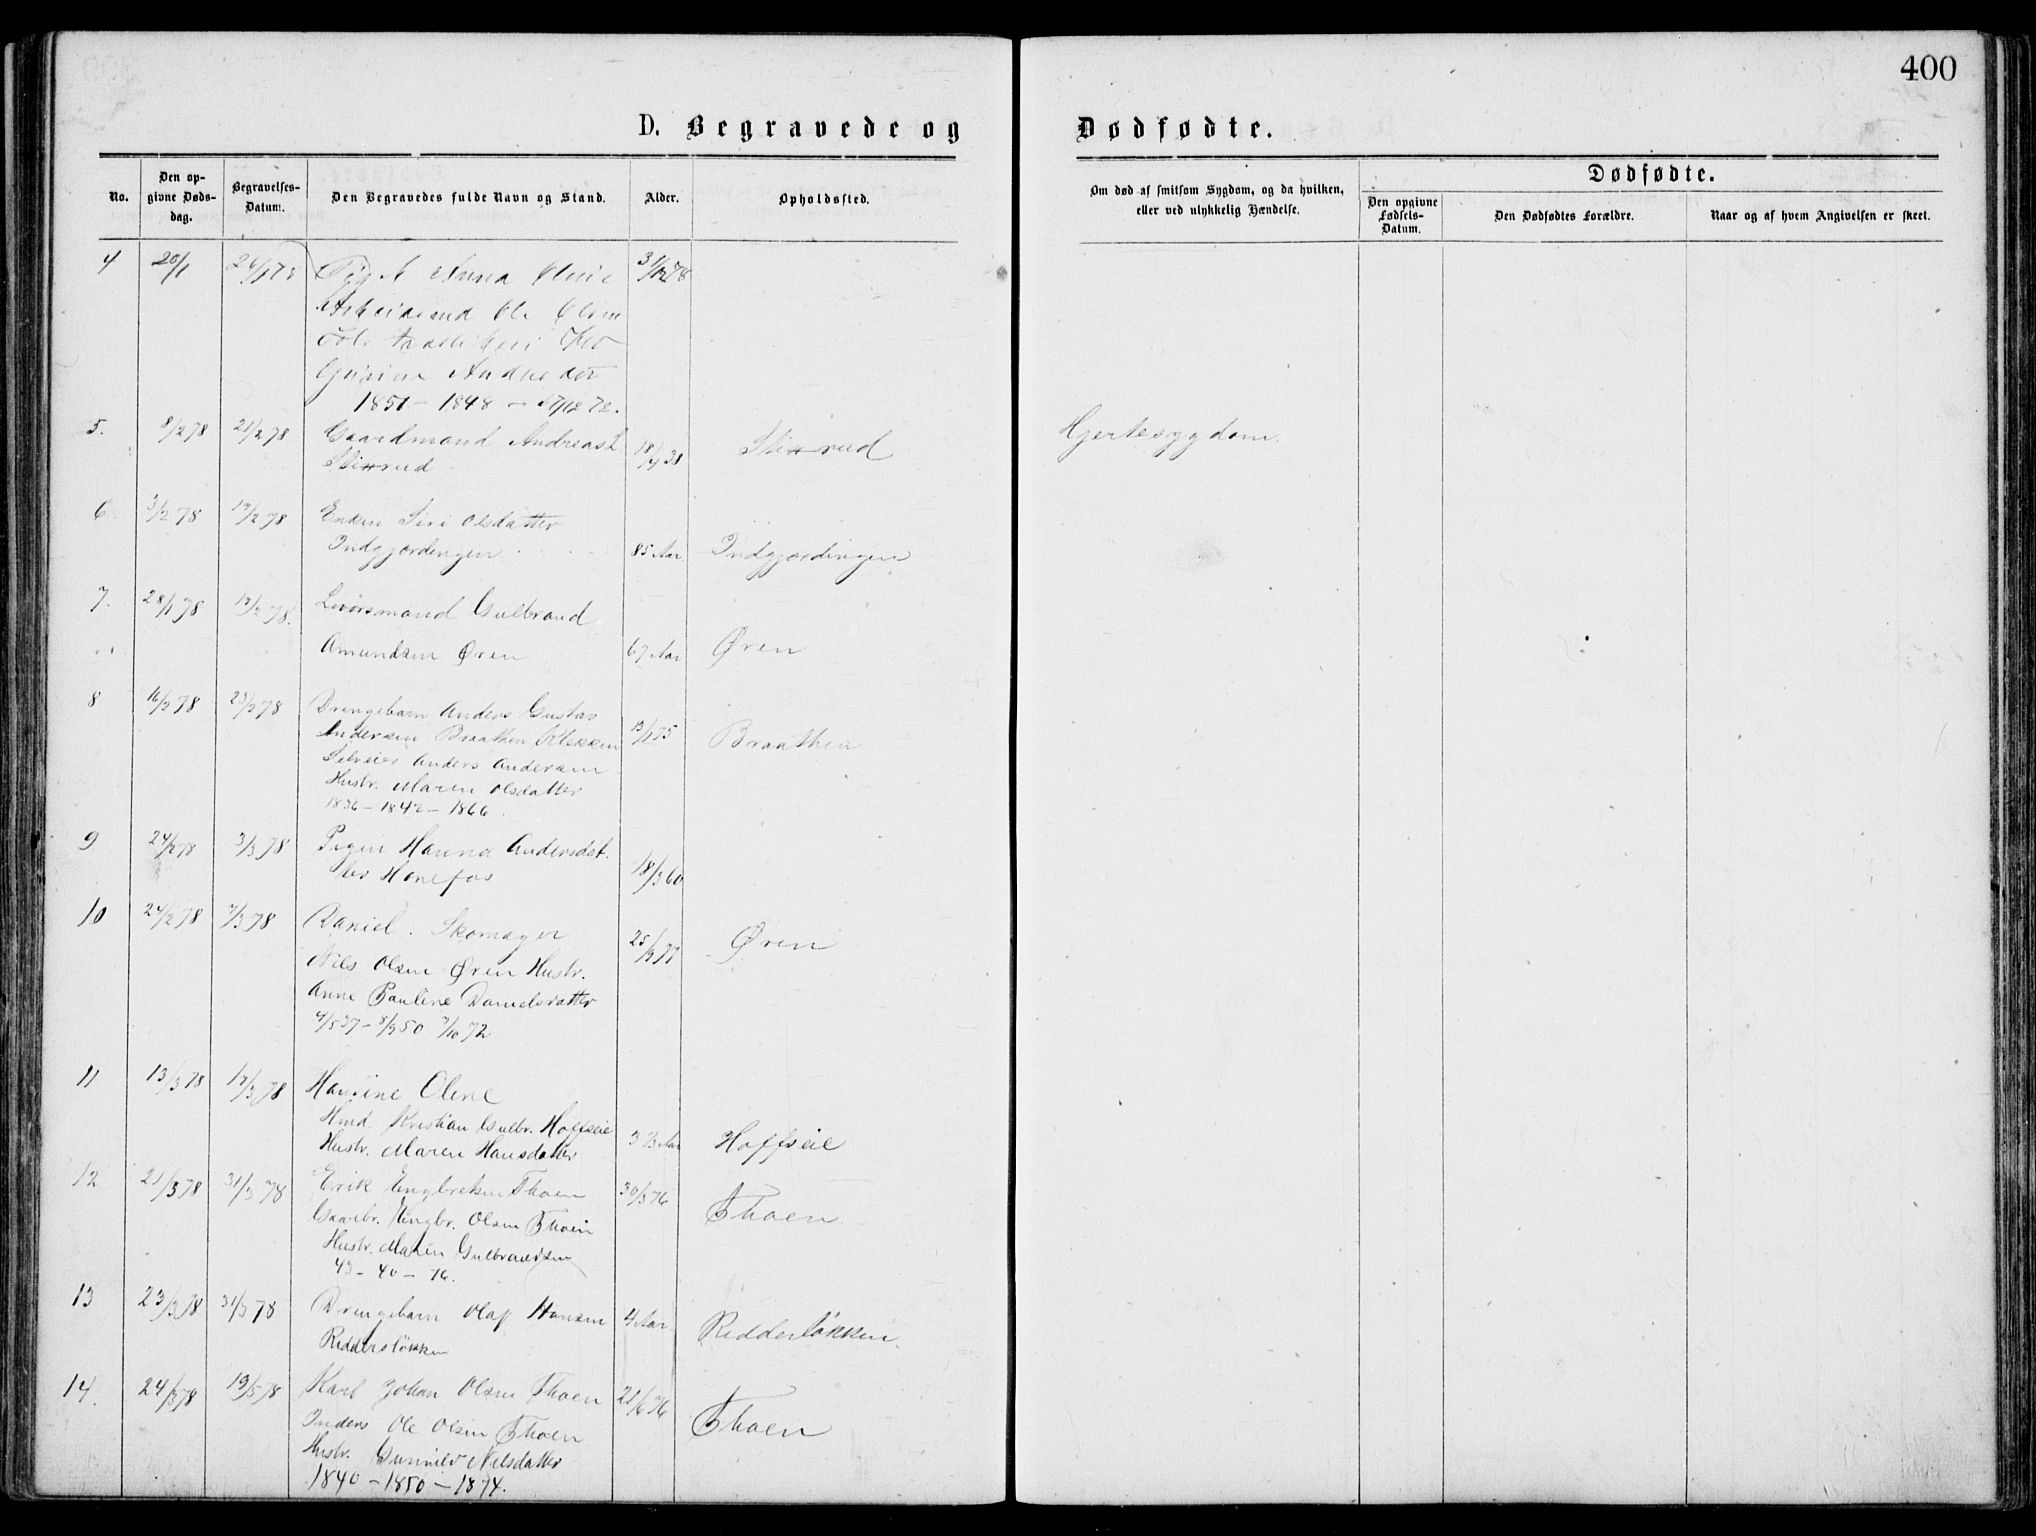 400
D. Begravede og Dødfødte.
No.
Den opgivne Dødsdag.
Begravelses-Datum.
Den Begravedes fulde Navn og Stand.
Alder.
Opholdssted.
Om død af smitsom Sygdom, og da hvilken, eller ved ulykkelig Hændelse.
Dødfødte.
Den opgivne Fødsels-Datum.
Den Dødfødtes Forældre.
Naar og af hvem Angivelsen er skeet.
4 20/1 Anna
Ole Olsen
1851 - 1848 -
5. 9/2 78 21/2 78 Gaardmand Andreas Stixrud Hjertesygdom.
Stixrud
6. 3/2 78 19/2 78 Enken Siri Olsdatter
Indgjordingen 85 Aar Indgjordingen
7. 28/1 78 19/2 78. Gulbrand
Amundsen Øren 67 Aar Øren
8 16/2 78 23/2 78 Drengebarn Anders Gustav
Andersen Braathen Klekken 13/1 75 Braathen
Selveier Anders Andersen
Hustr. Maren Olsdatter
1836 - 1842 - 1866.
9 24/2 78 3/3 78 Pigen Hanna Andersdat-
ter Hønefos 18/3 60
10 24/2 78 7/3 78 Daniel. Skomager
Nils Olsen Øren Hustr. Øren
Anne Pauline Danielsdatter
4/5 37 - 8/3 50 7/10 72
11 13/3 78 17/3 78 Olene
Hmd. Kristian Gulbr. Hoffseie
Hustr. Maren Hansdatter Hoffseie
12 21/3 78 31/3 78 Erik Engbretsen Thoen 30/3 76
Gaardbr. Engbr. Olsen Thoen Thoen
Hustr. Maren Gulbrandsen
43 - 40 - 76.
13 23/3 78 31/3 78 Drengebarn Olaf Hansen 4 Aar
Riddersløkken Redderløkken
14. 24/3 78 19/5 78 Karl Johan Olsen Thoen 21/6 76
Inders Ole Olsen Thoen Thoen
Hustr. Gunnild Nilsdatter
1840 - 1850 - 1874.